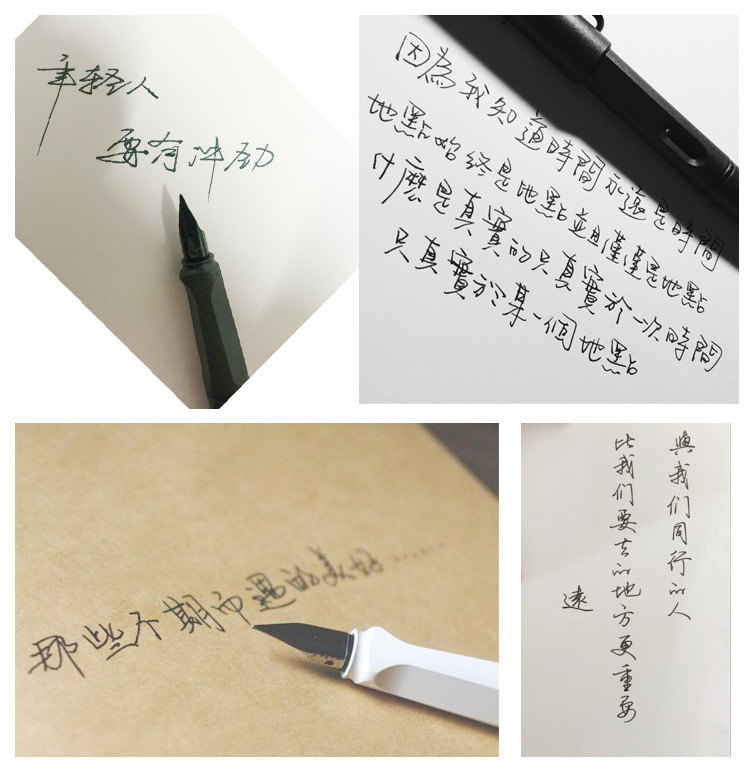 年轻人
要有冲劲
因為我知道時間永遠是時間
地點始終是地點並且僅僅是地點
什麼是真實的只真實於一次時間
只真實於某一個地點
那些不期而遇的美好……
與我们同行的人
比我们要去的地方更重要
遠